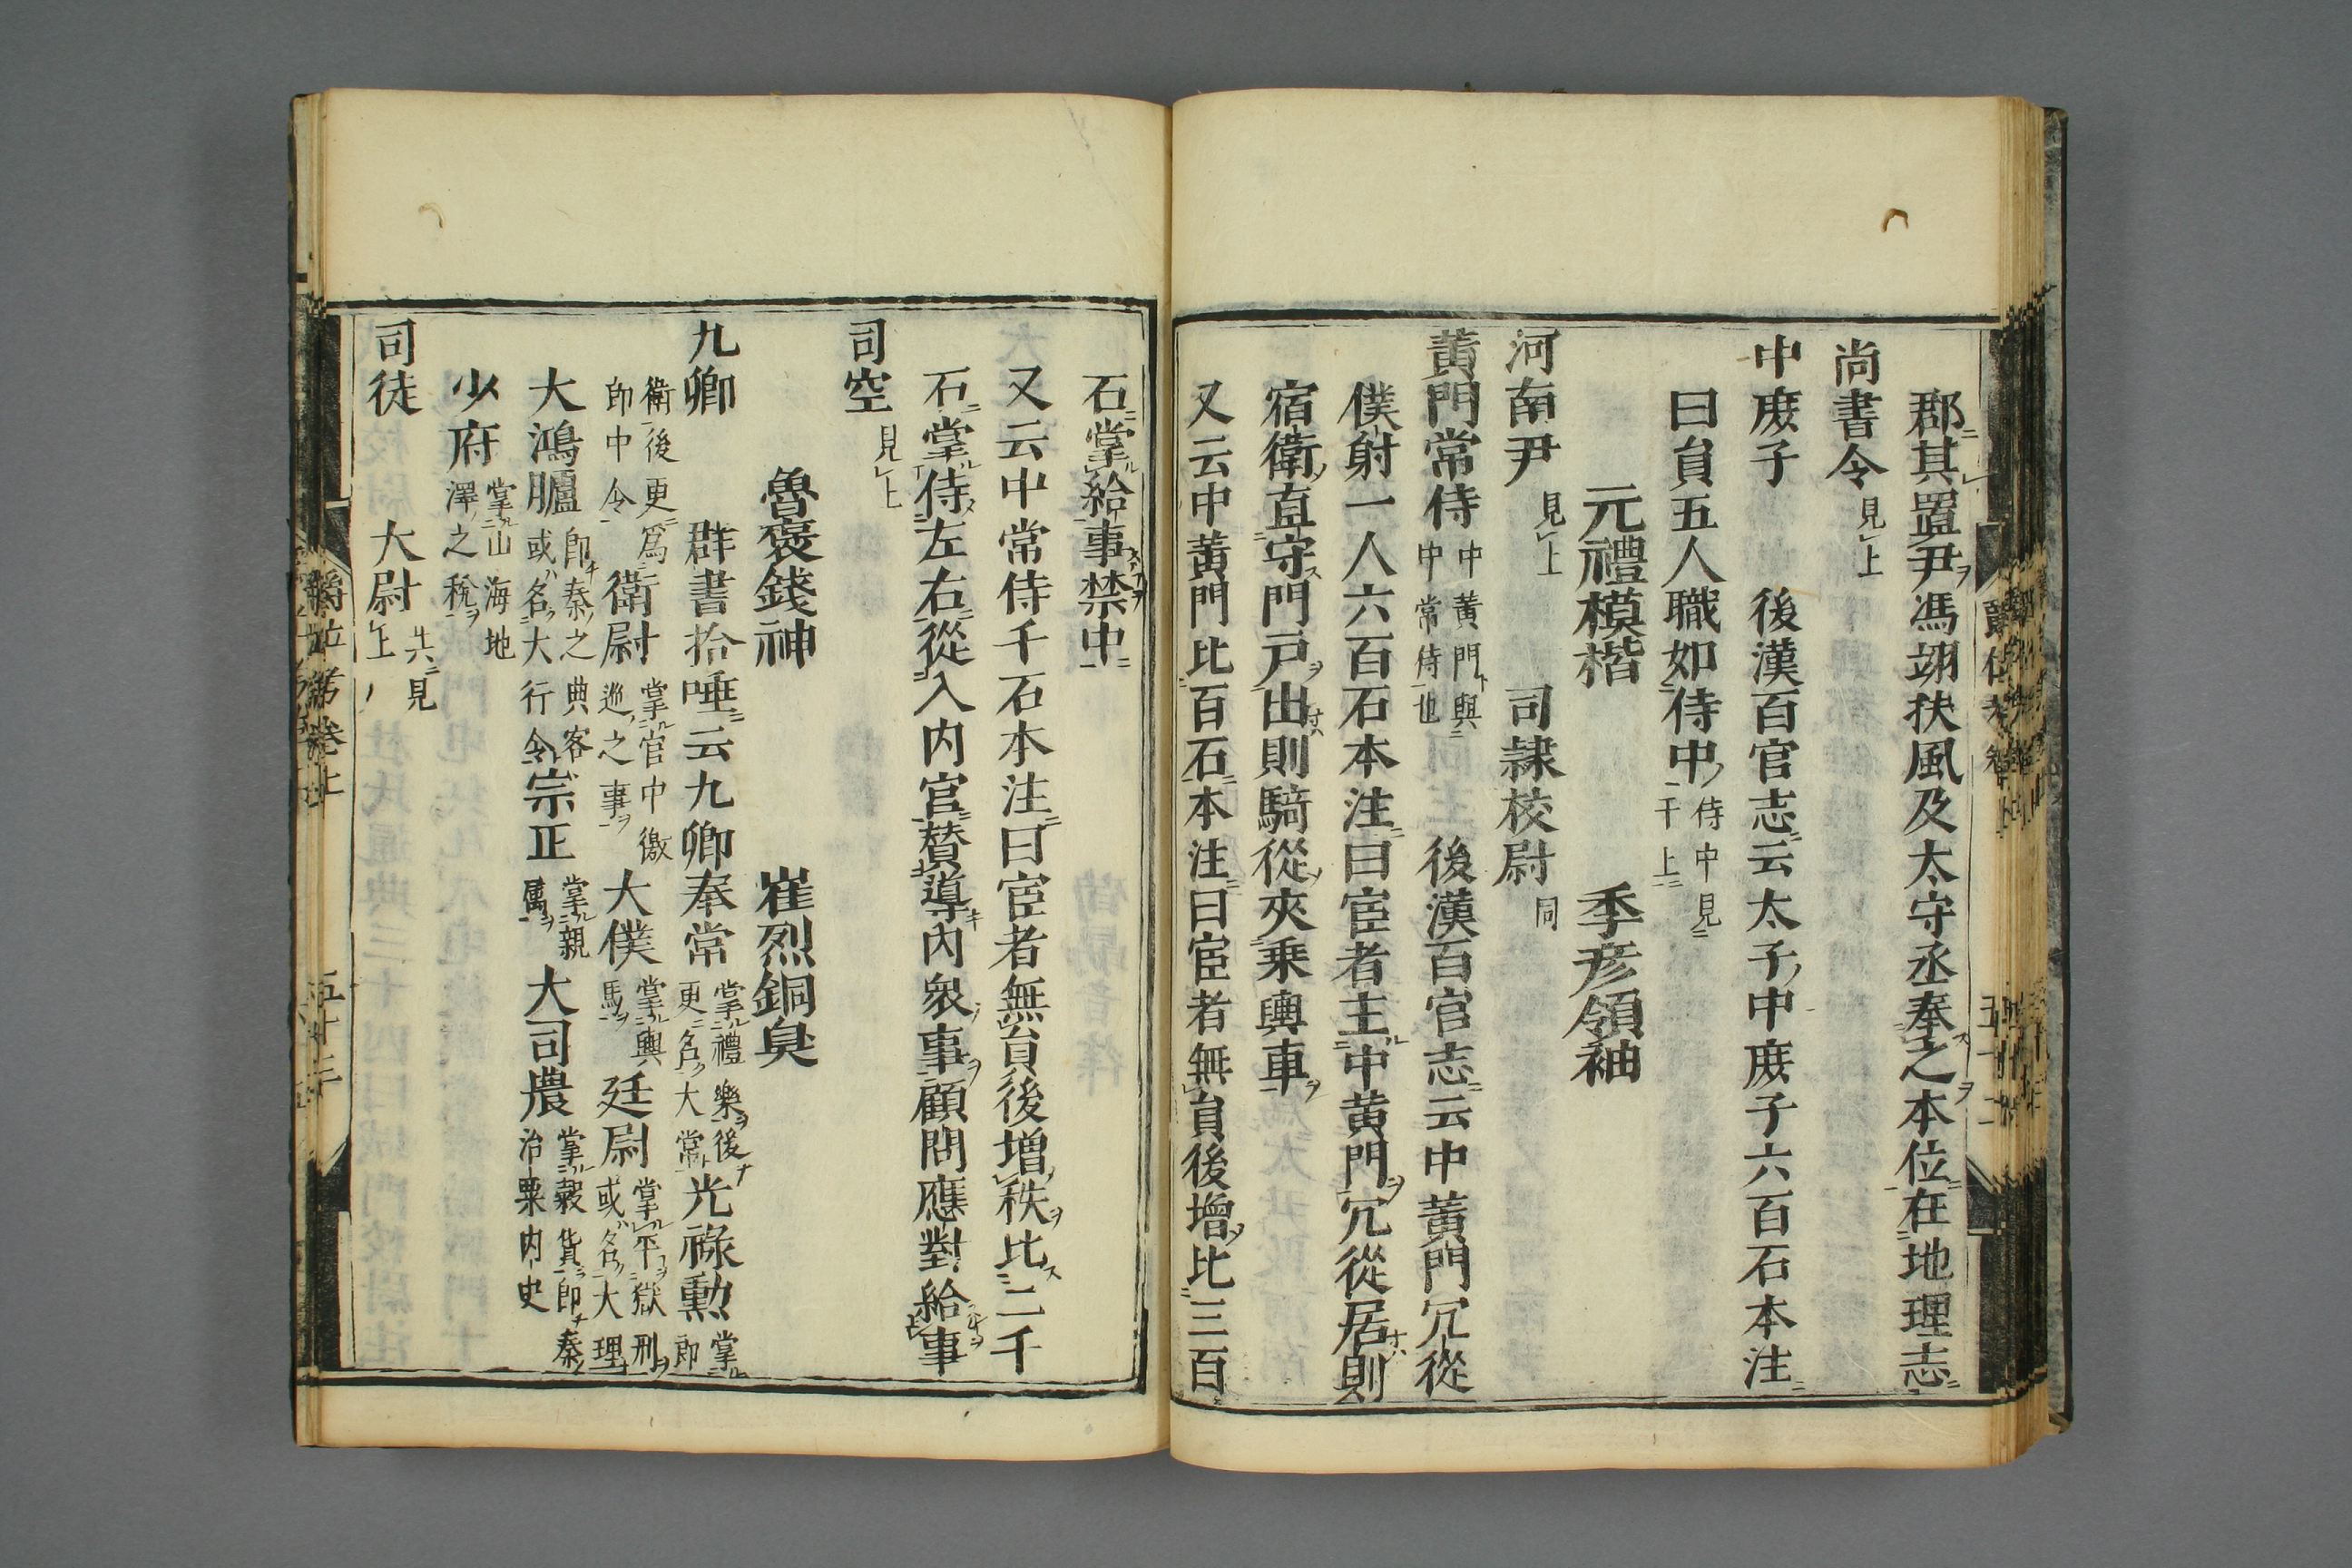 郡其置尹馮翊扶風及太守丞奉之本位在地理志
尚書令見上
中庶子　後漢百官志云太子中庶子六百石本注
曰員五人職如侍中侍中見于上
元禮模楷　季彦領袖
河南尹見上　司隷校尉同
黄門常侍中黄門與中常侍也　後漢百官志云中黄門冗從
僕射一人六百石本注曰宦者主中黄門冗從居則
宿衛直守門戸出則騎從夾乗輿車
又云中黄門比百石本注曰宦者無員後增比三百
石掌給事禁中
又云中常侍千石本注曰宦者無員後增秩比二千
石掌侍左右從入内宮賛導内衆事顧問應對給事
司空見上
魯褒錢神　崔烈銅臭
九卿　群書拾唾云九卿奉常掌禮樂後更名大常光祿勲掌即
衛後更爲郎中令衛尉掌宮中徼巡之事大僕掌輿馬廷尉掌平獄刑或名大理
大鴻臚即秦之典客或名大行令宗正掌親属大司農掌穀貨即秦治粟内史
少府掌山海地澤之税
司徒　大尉共見上
爵位考卷上　五十三